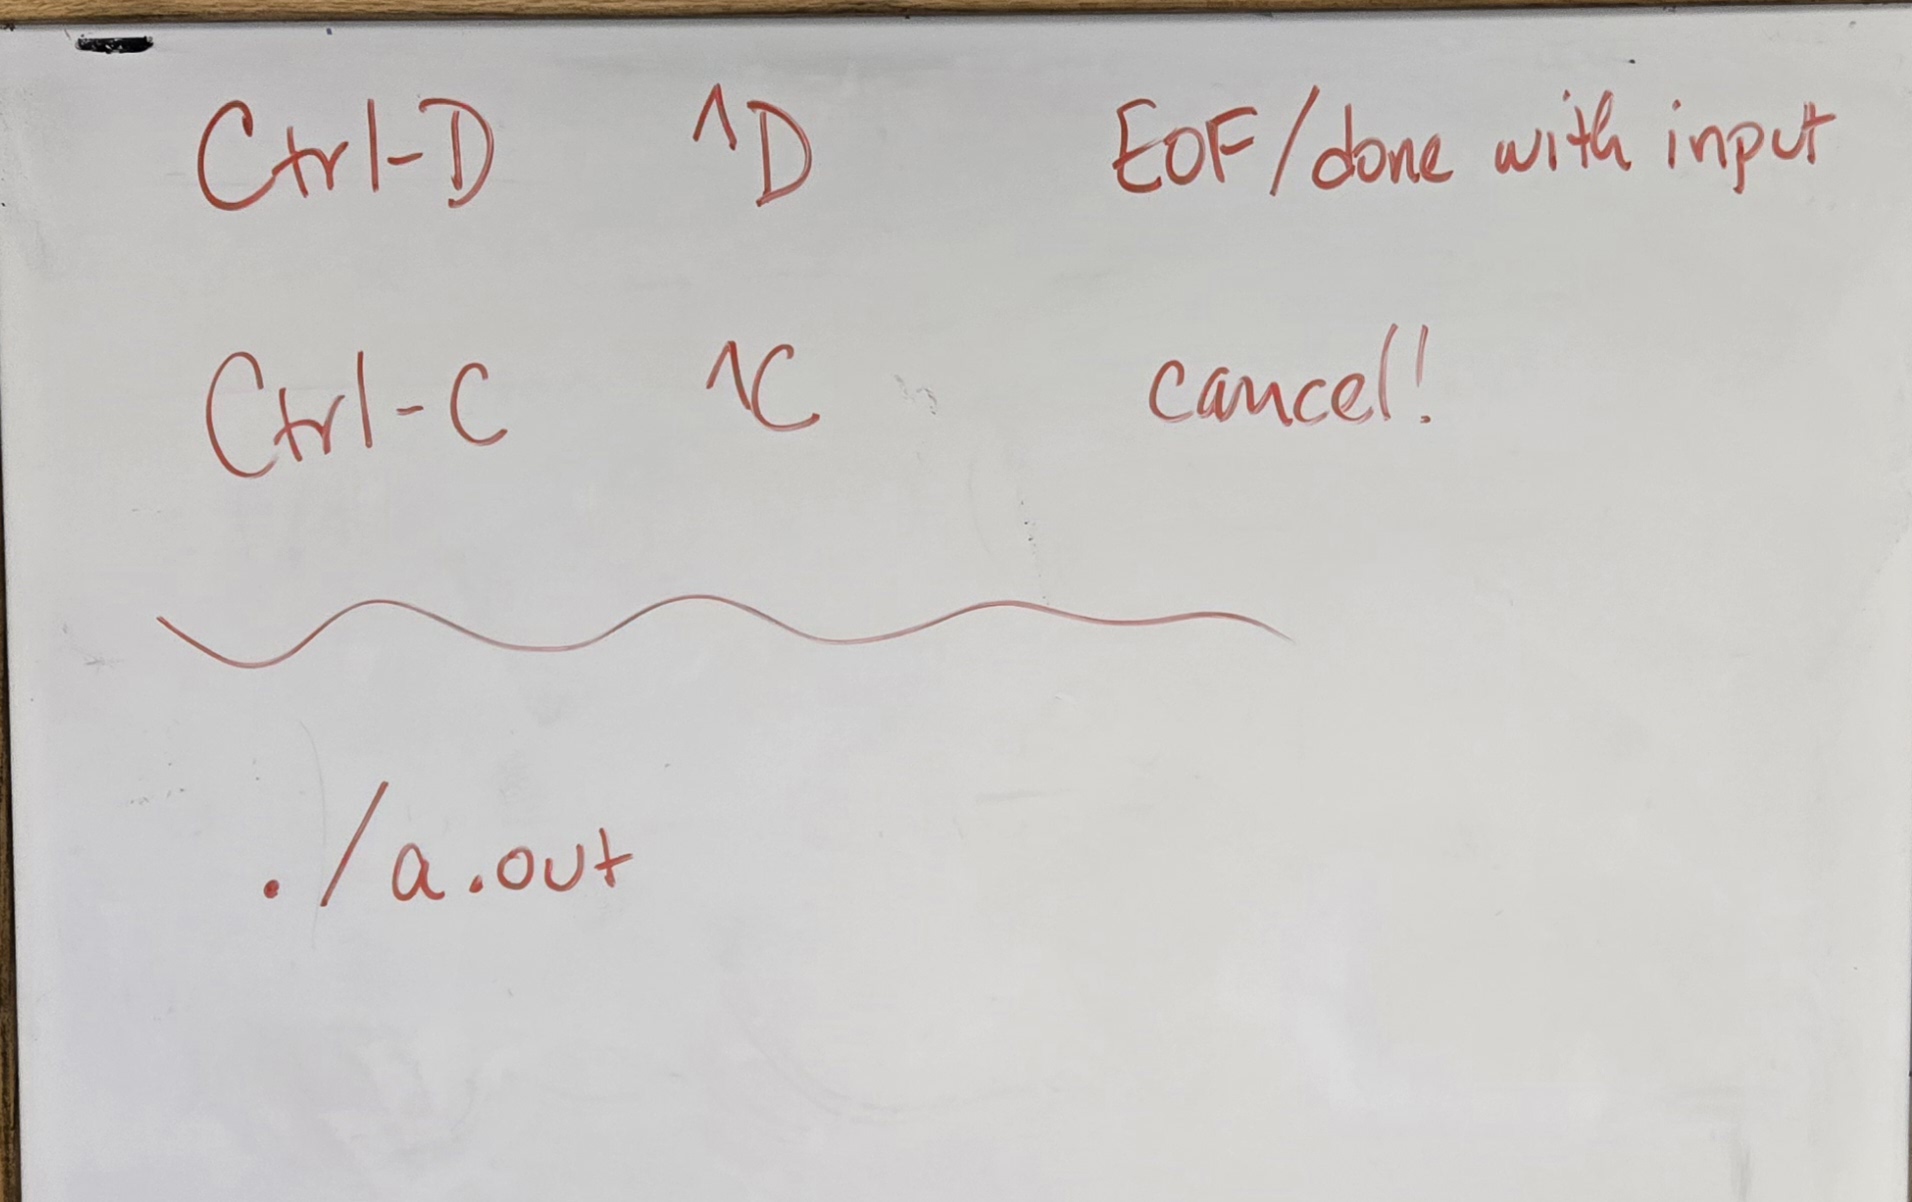 Ctrl-D ^D EOF/done with input
Ctrl-C ^C cancel!
./a.out